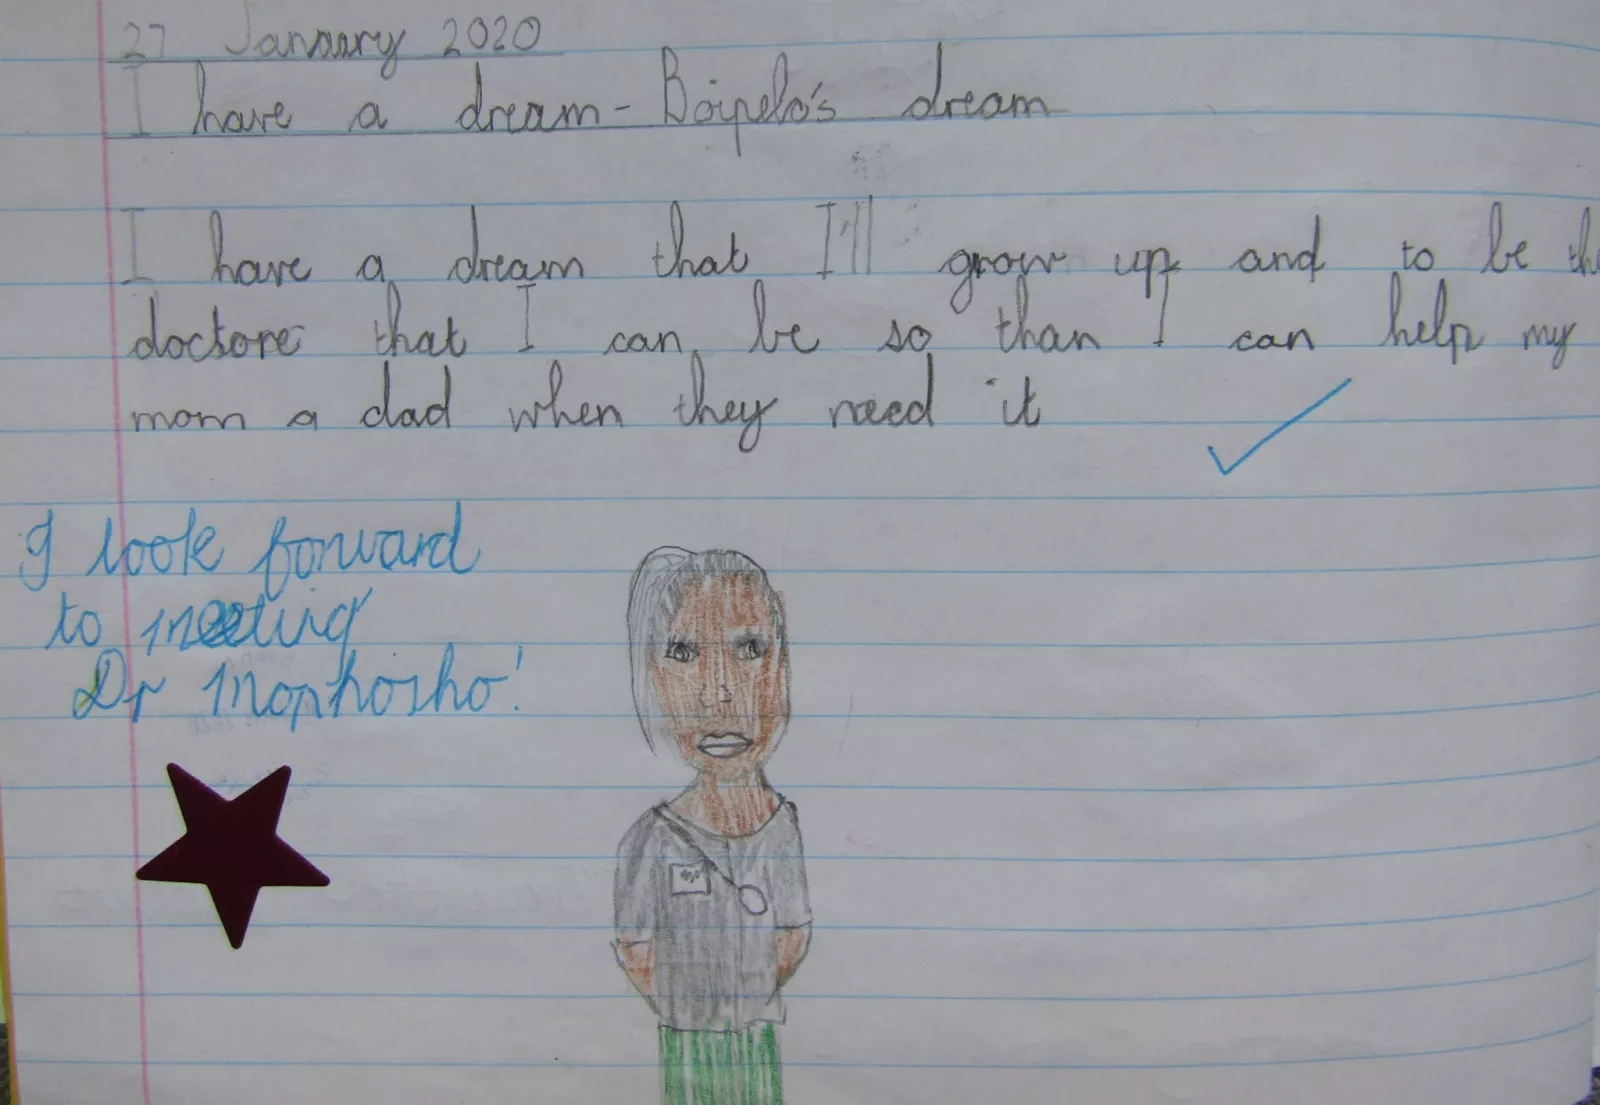 27 January 2020
I have a dream - Boipelo's dream
I have a dream that I'll grow up and to be the
doctore that I can be so than I can help my
mom a dad when they need it
I look forward
to meeting
Dr Mophosho!